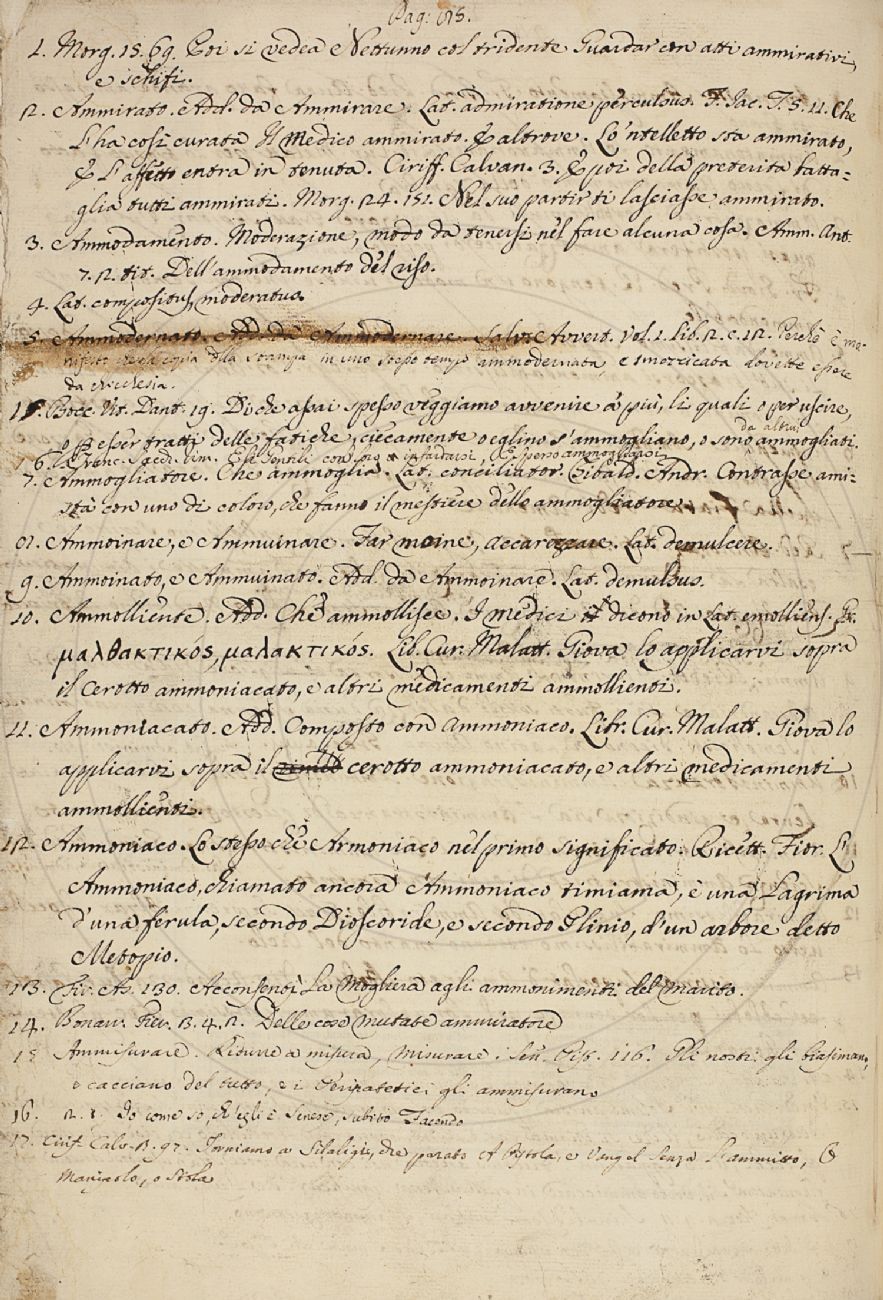 Pag: 
1. Morg. 15. 69. Poi si vedea e Nettunno col tridente Guardar con atti ammirativi,
e schifi.
2. Ammirato. Add. da Ammirare. Lat. admiratione perculsus. F. Jac. T. 5. 11. Che
L'ha così curata Il Medico ammirato. & altrove. Lo 'ntelletto sta ammirato,
& L'affetto entra in tenuta. Ciriff. Calvan. 3. & poi della preterita batta=
glia tutti ammirati. Morg. 24. 151. Nel suo partir ti lasciasse ammirato.
3. Ammodamento. Moderazione, modo da tenersi nel fare alcuna cosa. Amm. Ant.
7. 2. tit. Dell'ammodamento del riso.
4. Lat. compositus, moderatus.
5. Ammodernato. Add. da Ammodernare. Salv. Avvert. Vol. 1. Lib. 2. c. 12. Perchè è ma-
nifesto che la copia della stampa in uno stesso tempo ammodernata, e smozzicata dovette essere
da chicchesia.
Bocc. Vit. Dant. 19. Di che assai spesso veggiamo avvenire a più, li quali o per uscire,
o per esser tratti delle fatiche, ciecamente o eglino s'ammogliano, o sono da altrui ammogliati.
6. Franc. Sacch. rim. 
7. Ammogliatore. Che ammoglia. Lat. conciliator. Zibald. Andr. Contrasse ami-
stà con uno di coloro, che fanno il mestiere dello ammogliatore.
8. Ammoinare, e Ammuinare. Far moine, accarezzare. Lat. demulcere.
9. Ammoinato, e Ammuinato. Add. da Ammoinare. Lat. demulsus.
10. Ammolliente. Add. Che ammollisce. I medici il dicono in Lat. emolliens. Gr.
μαλθακτικός, μαλακτικός. Lib. Cur. Malatt. Giova lo applicarvi sopra
il cerotto ammoniacato, e altri medicamenti ammollienti.
11. Ammoniacato. Add. Composto con ammoniaco. Libr. Cur. Malatt. Giova lo
applicarvi sopra il cerotto ammoniacato, e altri medicamenti
ammollienti.
12. Ammoniaco. Lo stesso che Armoniaco nel primo significato. Ricett. Fior. L'
Ammoniaco, chiamato ancora Ammoniaco timiama, è una Lagrima
d'una ferula, secondo Dioscoride, e secondo Plinio, d'un arbore detto
Metopio.
13. Fir. As. 130. Acconsentì La Mogliera agli ammonimenti del marito.
14. Bonarr. Fier. 3. 4. 2. Delle cose mutate ammiratore
15 Ammisurare. Ridurre a misura, misurare. Sen. Pist. 116. Gli nostri gli biasimano,
e cacciano del tutto, e i Peripatetici gli ammisurano
16. 2. Io come so, ch'egli è Senese, subito Facendo
17. Cirif. Calv. 3. 97. Torniamo a , che parato Pistola, e Vangel senza L'ammitto, O
Manipolo, o Stola